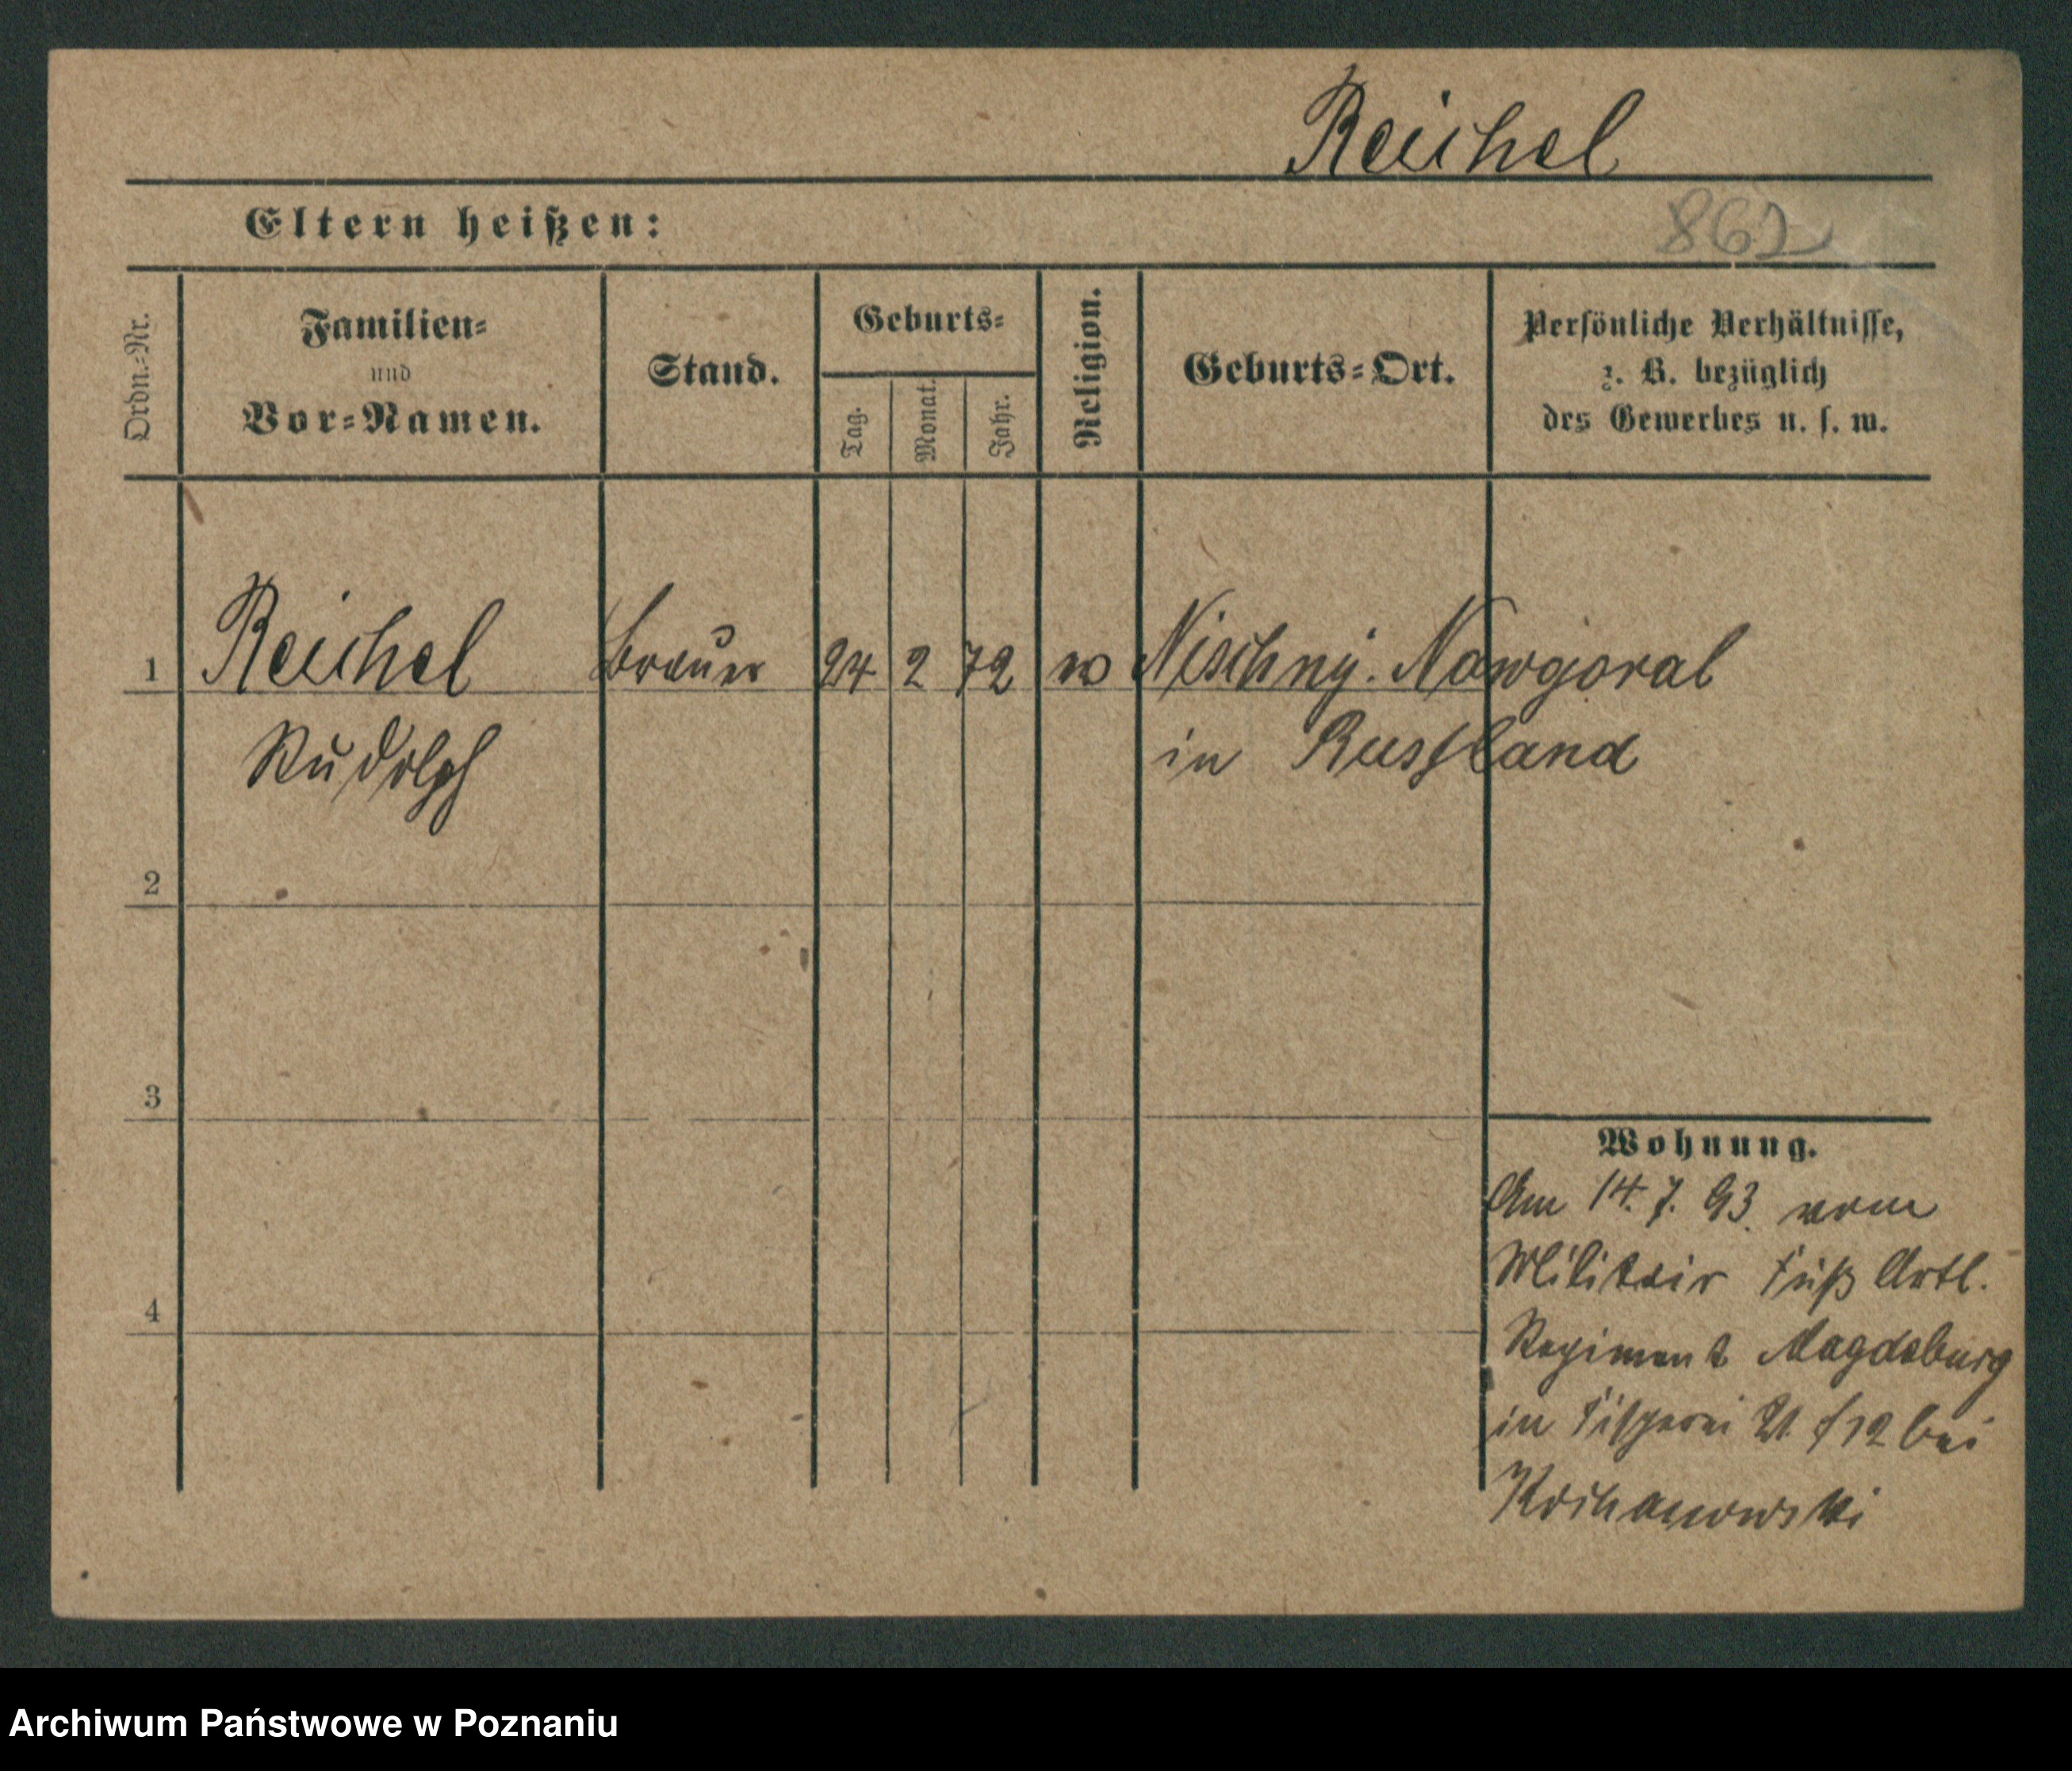 Reichel
Eltern heißen:
862
Ordn.=Nr.
Familien=
und
Vor=Namen.
Stand.
Geburts=
Tag.
Monat.
Jahr.
Religion.
Geburts=Ort.
Persönliche Verhältnisse,
z. B. bezüglich
des Gewerbes u. s. w.
1 Reichel Brauer 24 2 72 Nischny. Nowgorod
Rudolph in Russland
2
3
4
Wohnung.
Am 14. 7. 93. vom
Militair Fuß Artl.
Regiment Magdeburg
in Fischerei 21 bei
Kochanowski
Archiwum Państwowe w Poznaniu